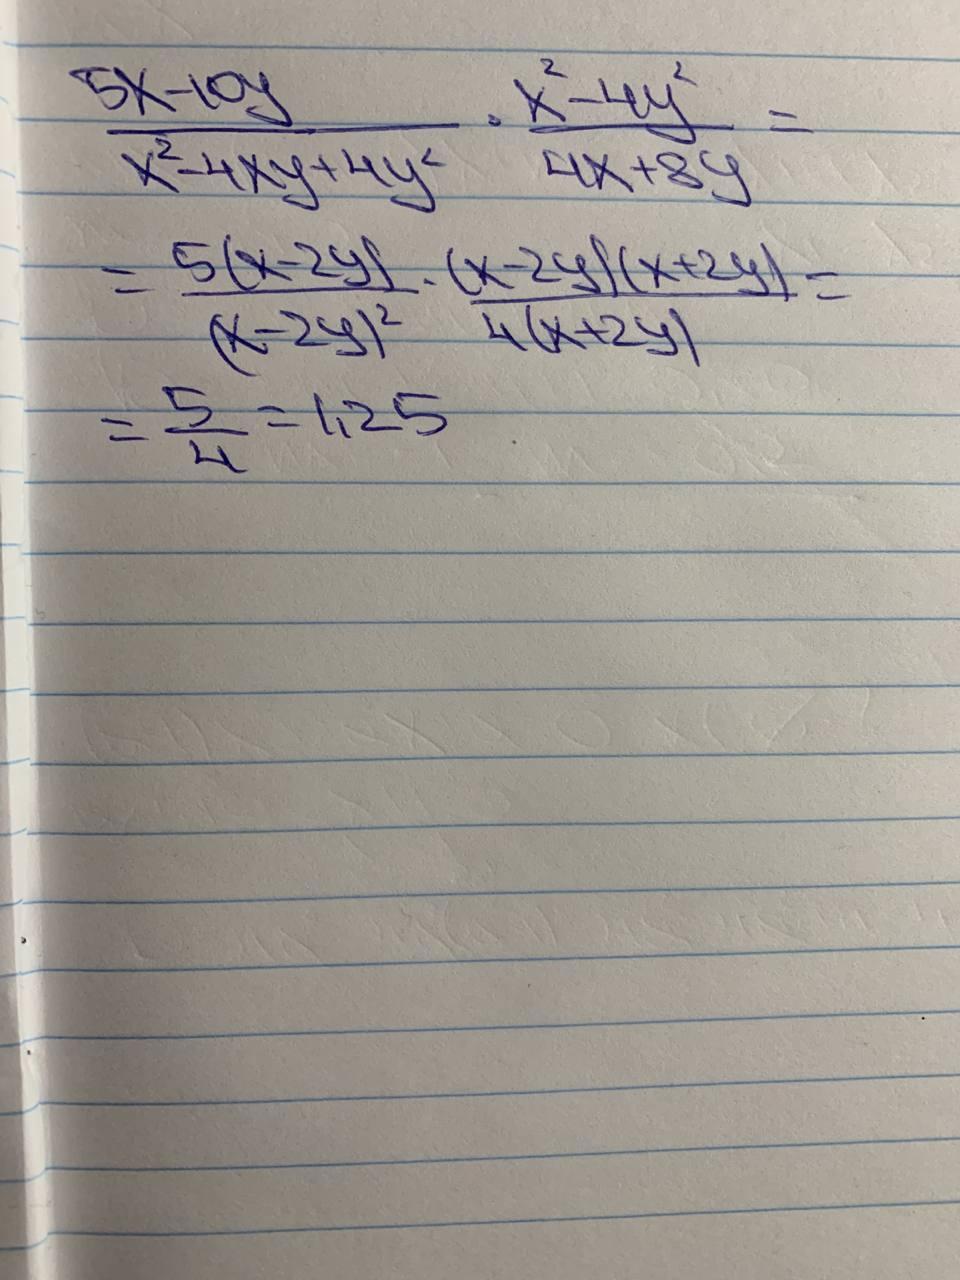 5x-10y / x²-4xy+4y² · x²-4y² / 4x+8y =
= 5(x-2y) / (x-2y)² · (x-2y)(x+2y) / 4(x+2y) =
= 5/4 = 1,25